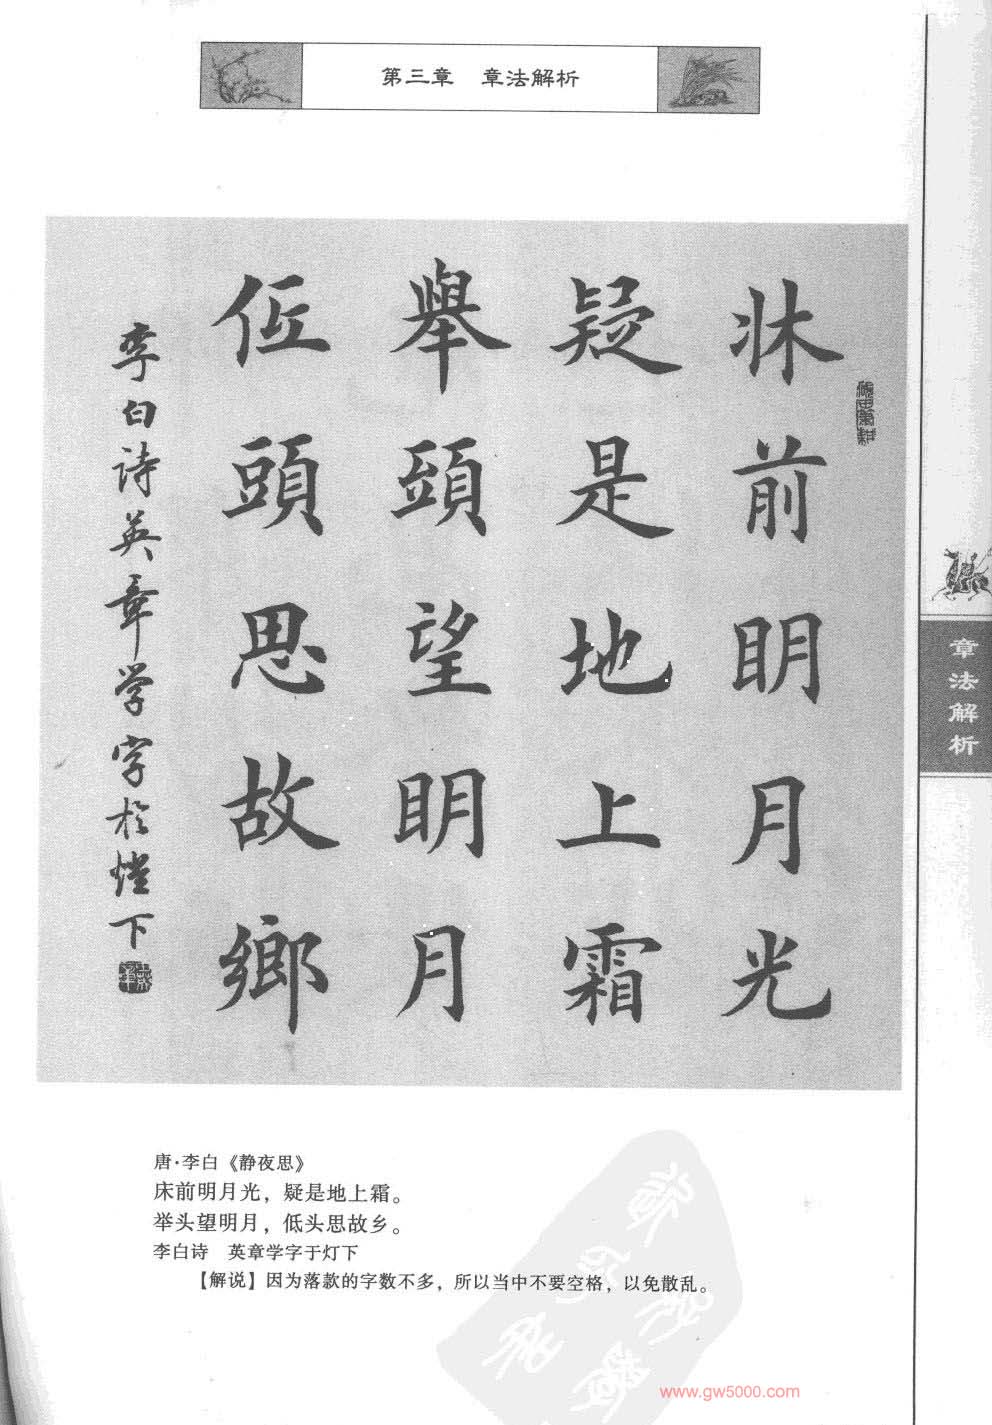 第三章　章法解析
牀前明月光
疑是地上霜
舉頭望明月
低頭思故鄉
李白诗英章学字於燈下
章法解析
唐·李白《静夜思》
床前明月光，疑是地上霜。
举头望明月，低头思故乡。
李白诗　英章学字于灯下
【解说】因为落款的字数不多，所以当中不要空格，以免散乱。
www.gw5000.com